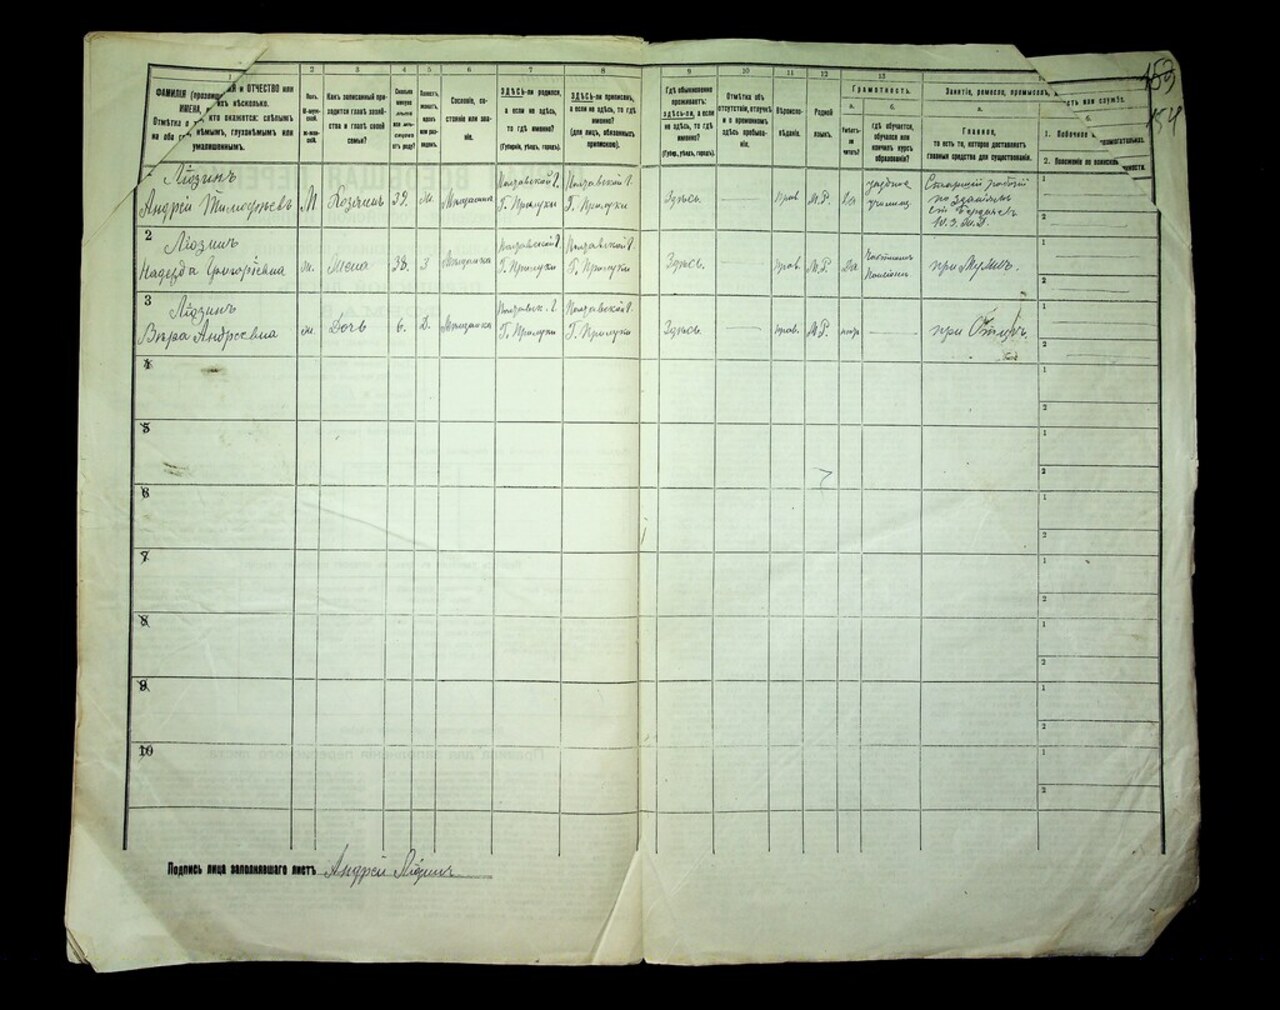 159
154
1
2
3
4
5
6
7
8
9
10
11
12
13
ФАМИЛІЯ
и ОТЧЕСТВО или
ИМЕНА,
ихъ нѣсколько.
Отмѣтка о
кто окажется: слѣпымъ
на оба
нѣмымъ, глухонѣмымъ или
умалишеннымъ.
Полъ.
Какъ записанный при-
ходится главѣ хозяй-
ства и главѣ своей
семьи?
Сколько
минуло
лѣтъ
или мѣ-
сяцевъ
отъ роду?
Холостъ,
женатъ,
вдовъ
или раз-
веденъ.
Сословіе, со-
стояніе или зва-
ніе.
ЗДѢСЬ-ли родился,
а если не здѣсь,
то гдѣ именно?
(Губернія, уѣздъ, городъ).
ЗДѢСЬ-ли приписанъ,
а если не здѣсь, то гдѣ
именно?
(для лицъ, обязанныхъ
припискою).
Гдѣ обыкновенно
проживаетъ:
здѣсь-ли, а если
не здѣсь, то гдѣ
именно?
(Губер., уѣздъ, городъ).
Отмѣтка объ
отсутствіи, отлучкѣ
и о временномъ
здѣсь пребыва-
ніи.
Вѣроиспо-
вѣданіе.
Родной
языкъ.
Грамотность.
а.
Умѣетъ-
ли
читать?
б.
гдѣ обучается,
обучался или
кончилъ курсъ
образованія?
Занятіе, ремесло, промыселъ,
сть или служба.
а.
Главное,
то есть то, которое доставляетъ
главныя средства для существованія.
б.
1. Побочное
вспомогательное.
2. Положеніе по воинской
повинности.
Лідзинъ
Андрій Тимофѣевъ М Хозяинъ 39. Ж. Мѣщанинъ Полтавской Г. Г. Прилуки Полтавской Г. Г. Прилуки Здѣсь. Прав М.Р. Да уѣздное училищ Старшій рабочій по зданіямъ ст. Бердянск. Ю.З.Ж.Д.
2
Лідзинъ
Надезда Григоріевна ж. Жена 38. З Мѣщанка Полтавской Г. Г. Прилуки Полтавской Г. Г. Прилуки Здѣсь. Прав. М.Р. Да Частномъ Пансіонѣ при Мужѣ.
3
Лідзинъ
Вѣра Андреевна ж. Дочь 6. Д. Мѣщанка Полтавск. Г. Г. Прилуки Полтавской Г. Г. Прилуки Здѣсь Прав. М.Р. при Отцѣ.
4
5
6
7
8
9
10
Подпись лица заполнявшаго листъ Андрей Лідзинъ